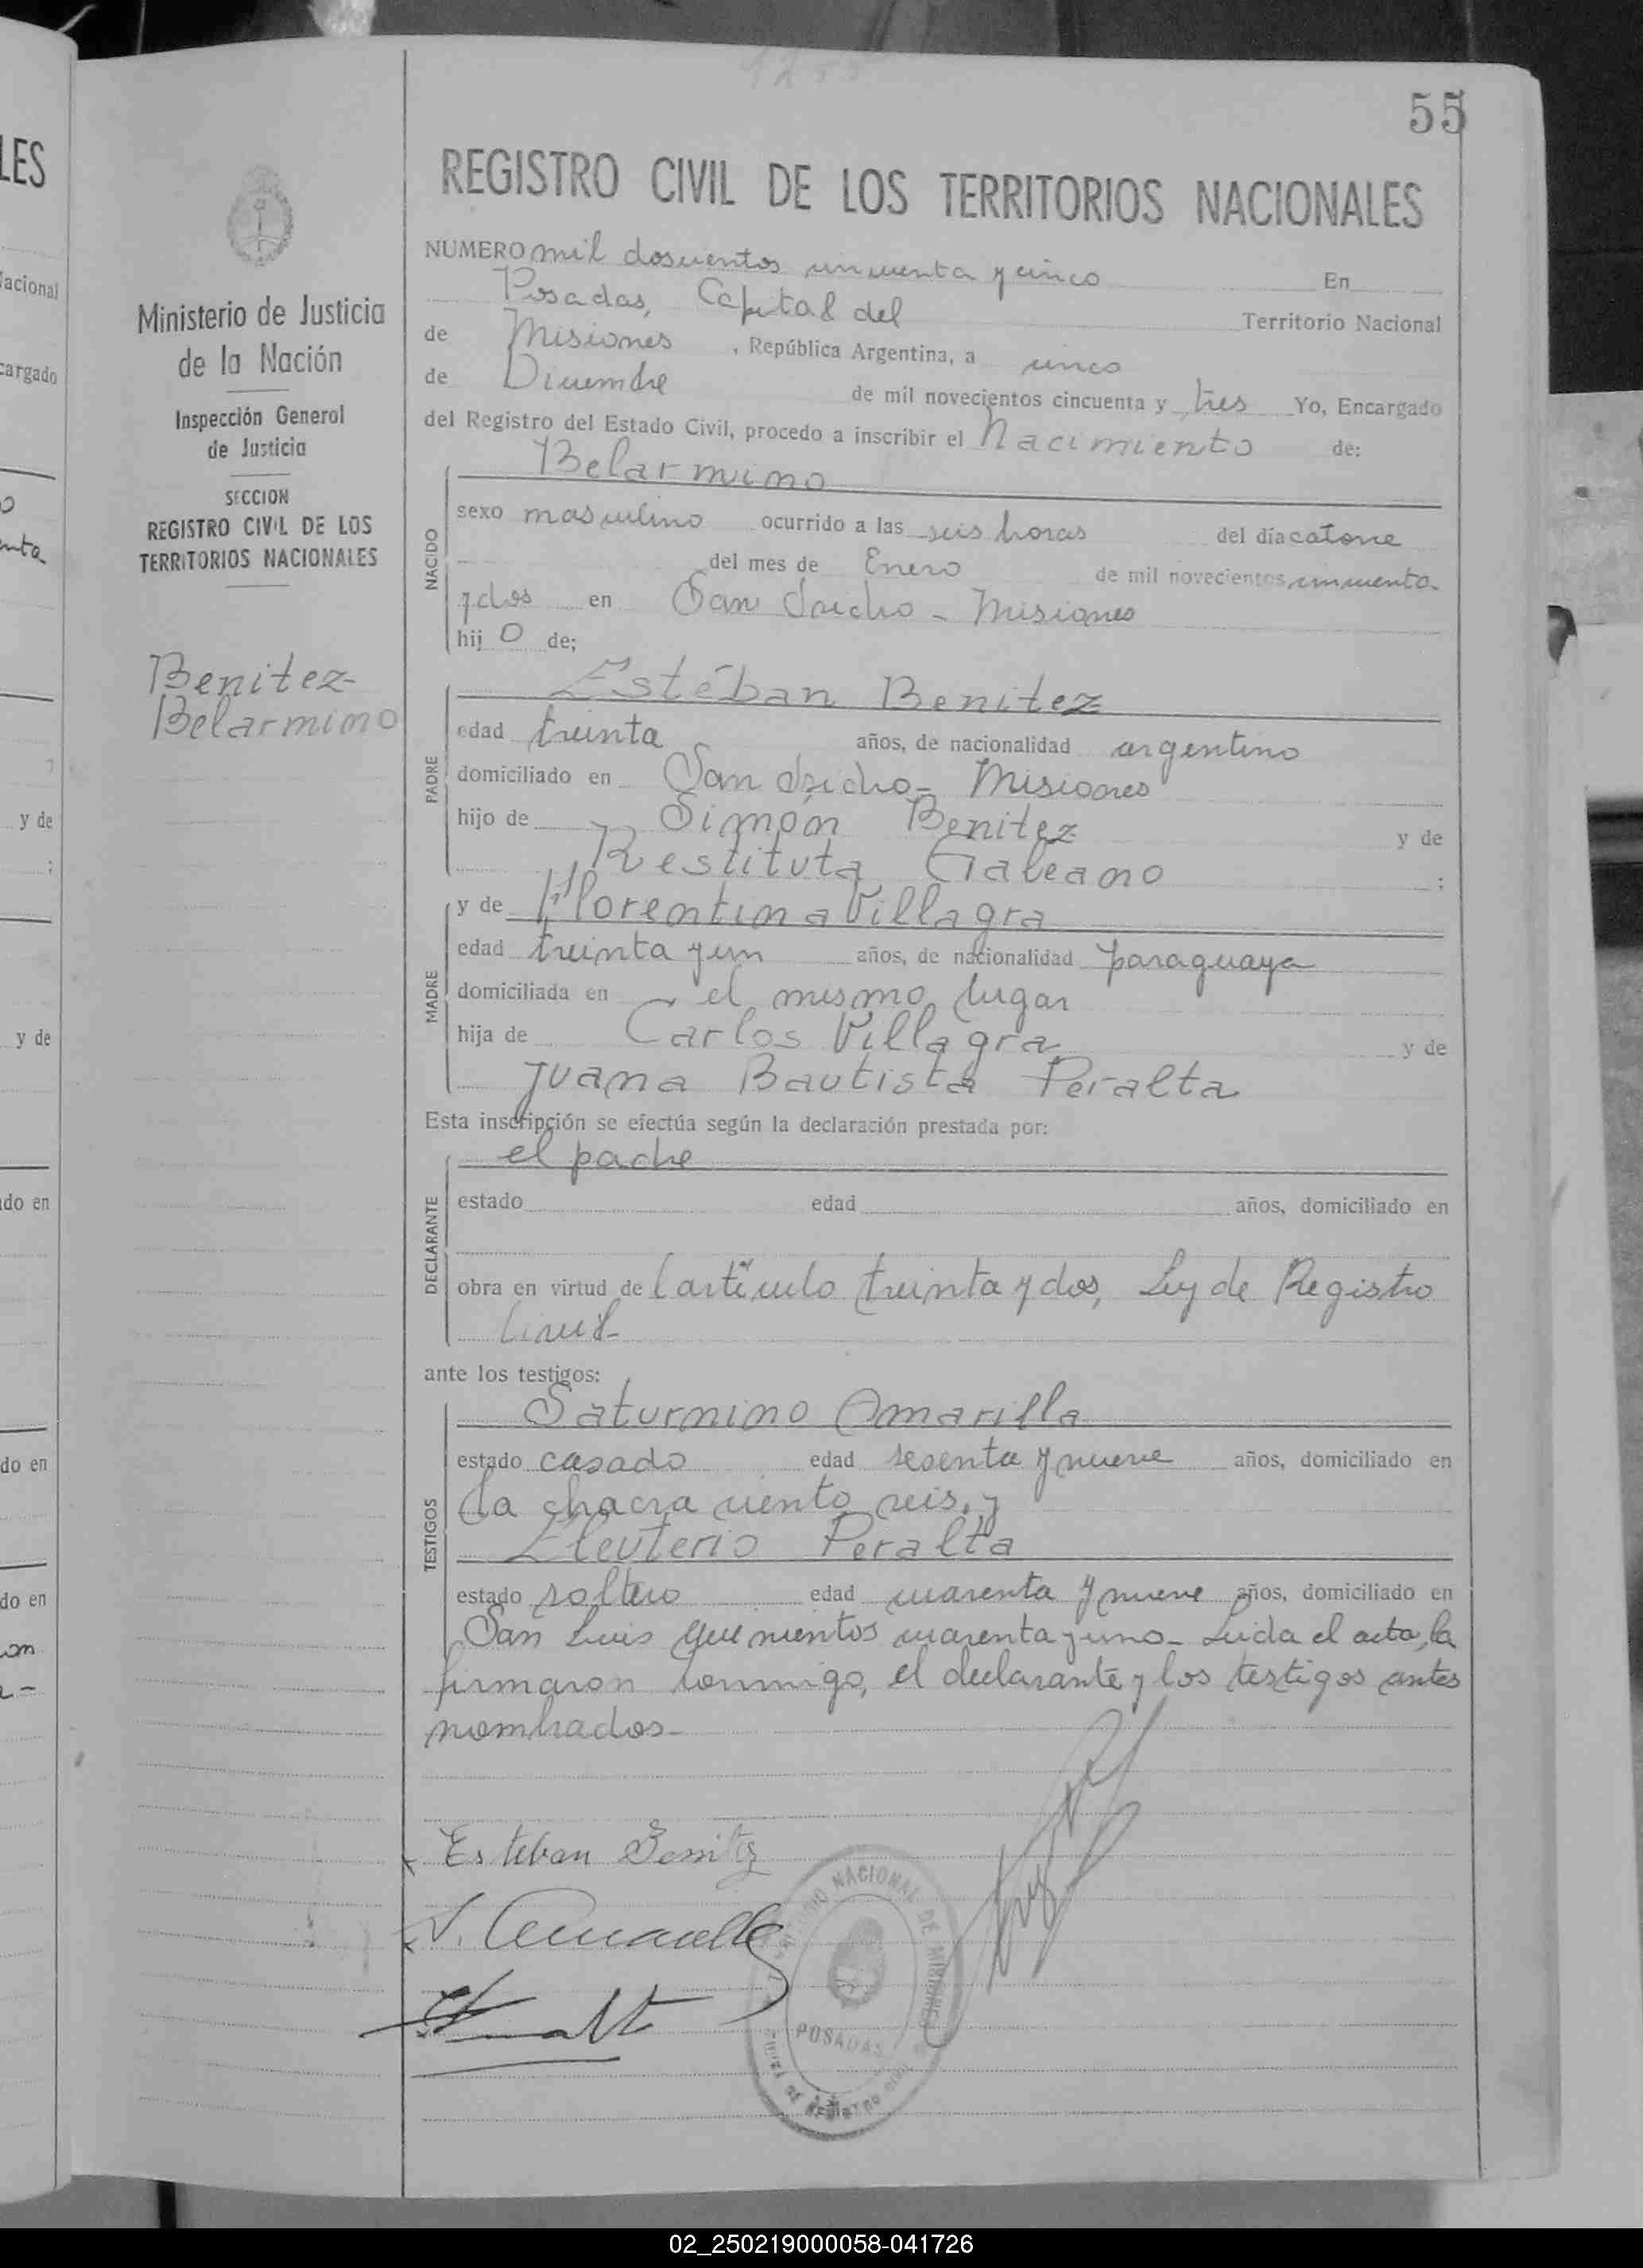 55
REGISTRO CIVIL DE LOS TERRITORIOS NACIONALES
NUMERO mil doscientos cincuenta y cinco En
Posadas, Capital del Territorio Nacional
de Misiones , República Argentina, a cinco
de Diciembre de mil novecientos cincuenta y tres Yo, Encargado
del Registro del Estado Civil, procedo a inscribir el Nacimiento de:
Ministerio de Justicia
de la Nación
Inspección General
de Justicia
SECCION
REGISTRO CIVIL DE LOS
TERRITORIOS NACIONALES
Benitez-
Belarmino
NACIDO
Belarmino
sexo masculino ocurrido a las seis horas del día catorce
del mes de Enero de mil novecientos cincuenta
y dos en San Isidro - Misiones
hijo de;
PADRE
Estéban Benitez
edad treinta años, de nacionalidad argentino
domiciliado en San Isidro - Misiones
hijo de Simón Benitez y de
Restituta Galeano ;
MADRE
y de Florentina Villagra
edad treinta y un años, de nacionalidad paraguaya
domiciliada en el mismo lugar
hija de Carlos Villagra y de
Juana Bautista Peralta
Esta inscripción se efectúa según la declaración prestada por:
DECLARANTE
el padre
estado edad años, domiciliado en
obra en virtud del artículo treinta y dos, Ley de Registro
Civil-
ante los testigos:
TESTIGOS
Saturnino Amarilla
estado casado edad sesenta y nueve años, domiciliado en
la chacra ciento seis, y
Eleuterio Peralta
estado soltero edad cuarenta y nueve años, domiciliado en
San Luis quinientos cuarenta y uno - Leida el acta, la
firmaron conmigo, el declarante y los testigos antes
nombrados-
Esteban Benitez
NACIONAL DE MISIONES
POSADAS
LES
Nacional
cargado
y de
;
y de
do en
do en
do en
02_250219000058-041726